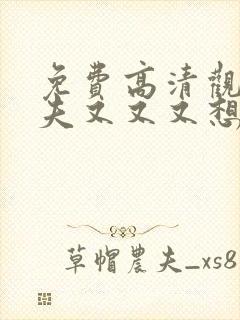 免費高清觀
夫又又又想
草帽農夫_xs8